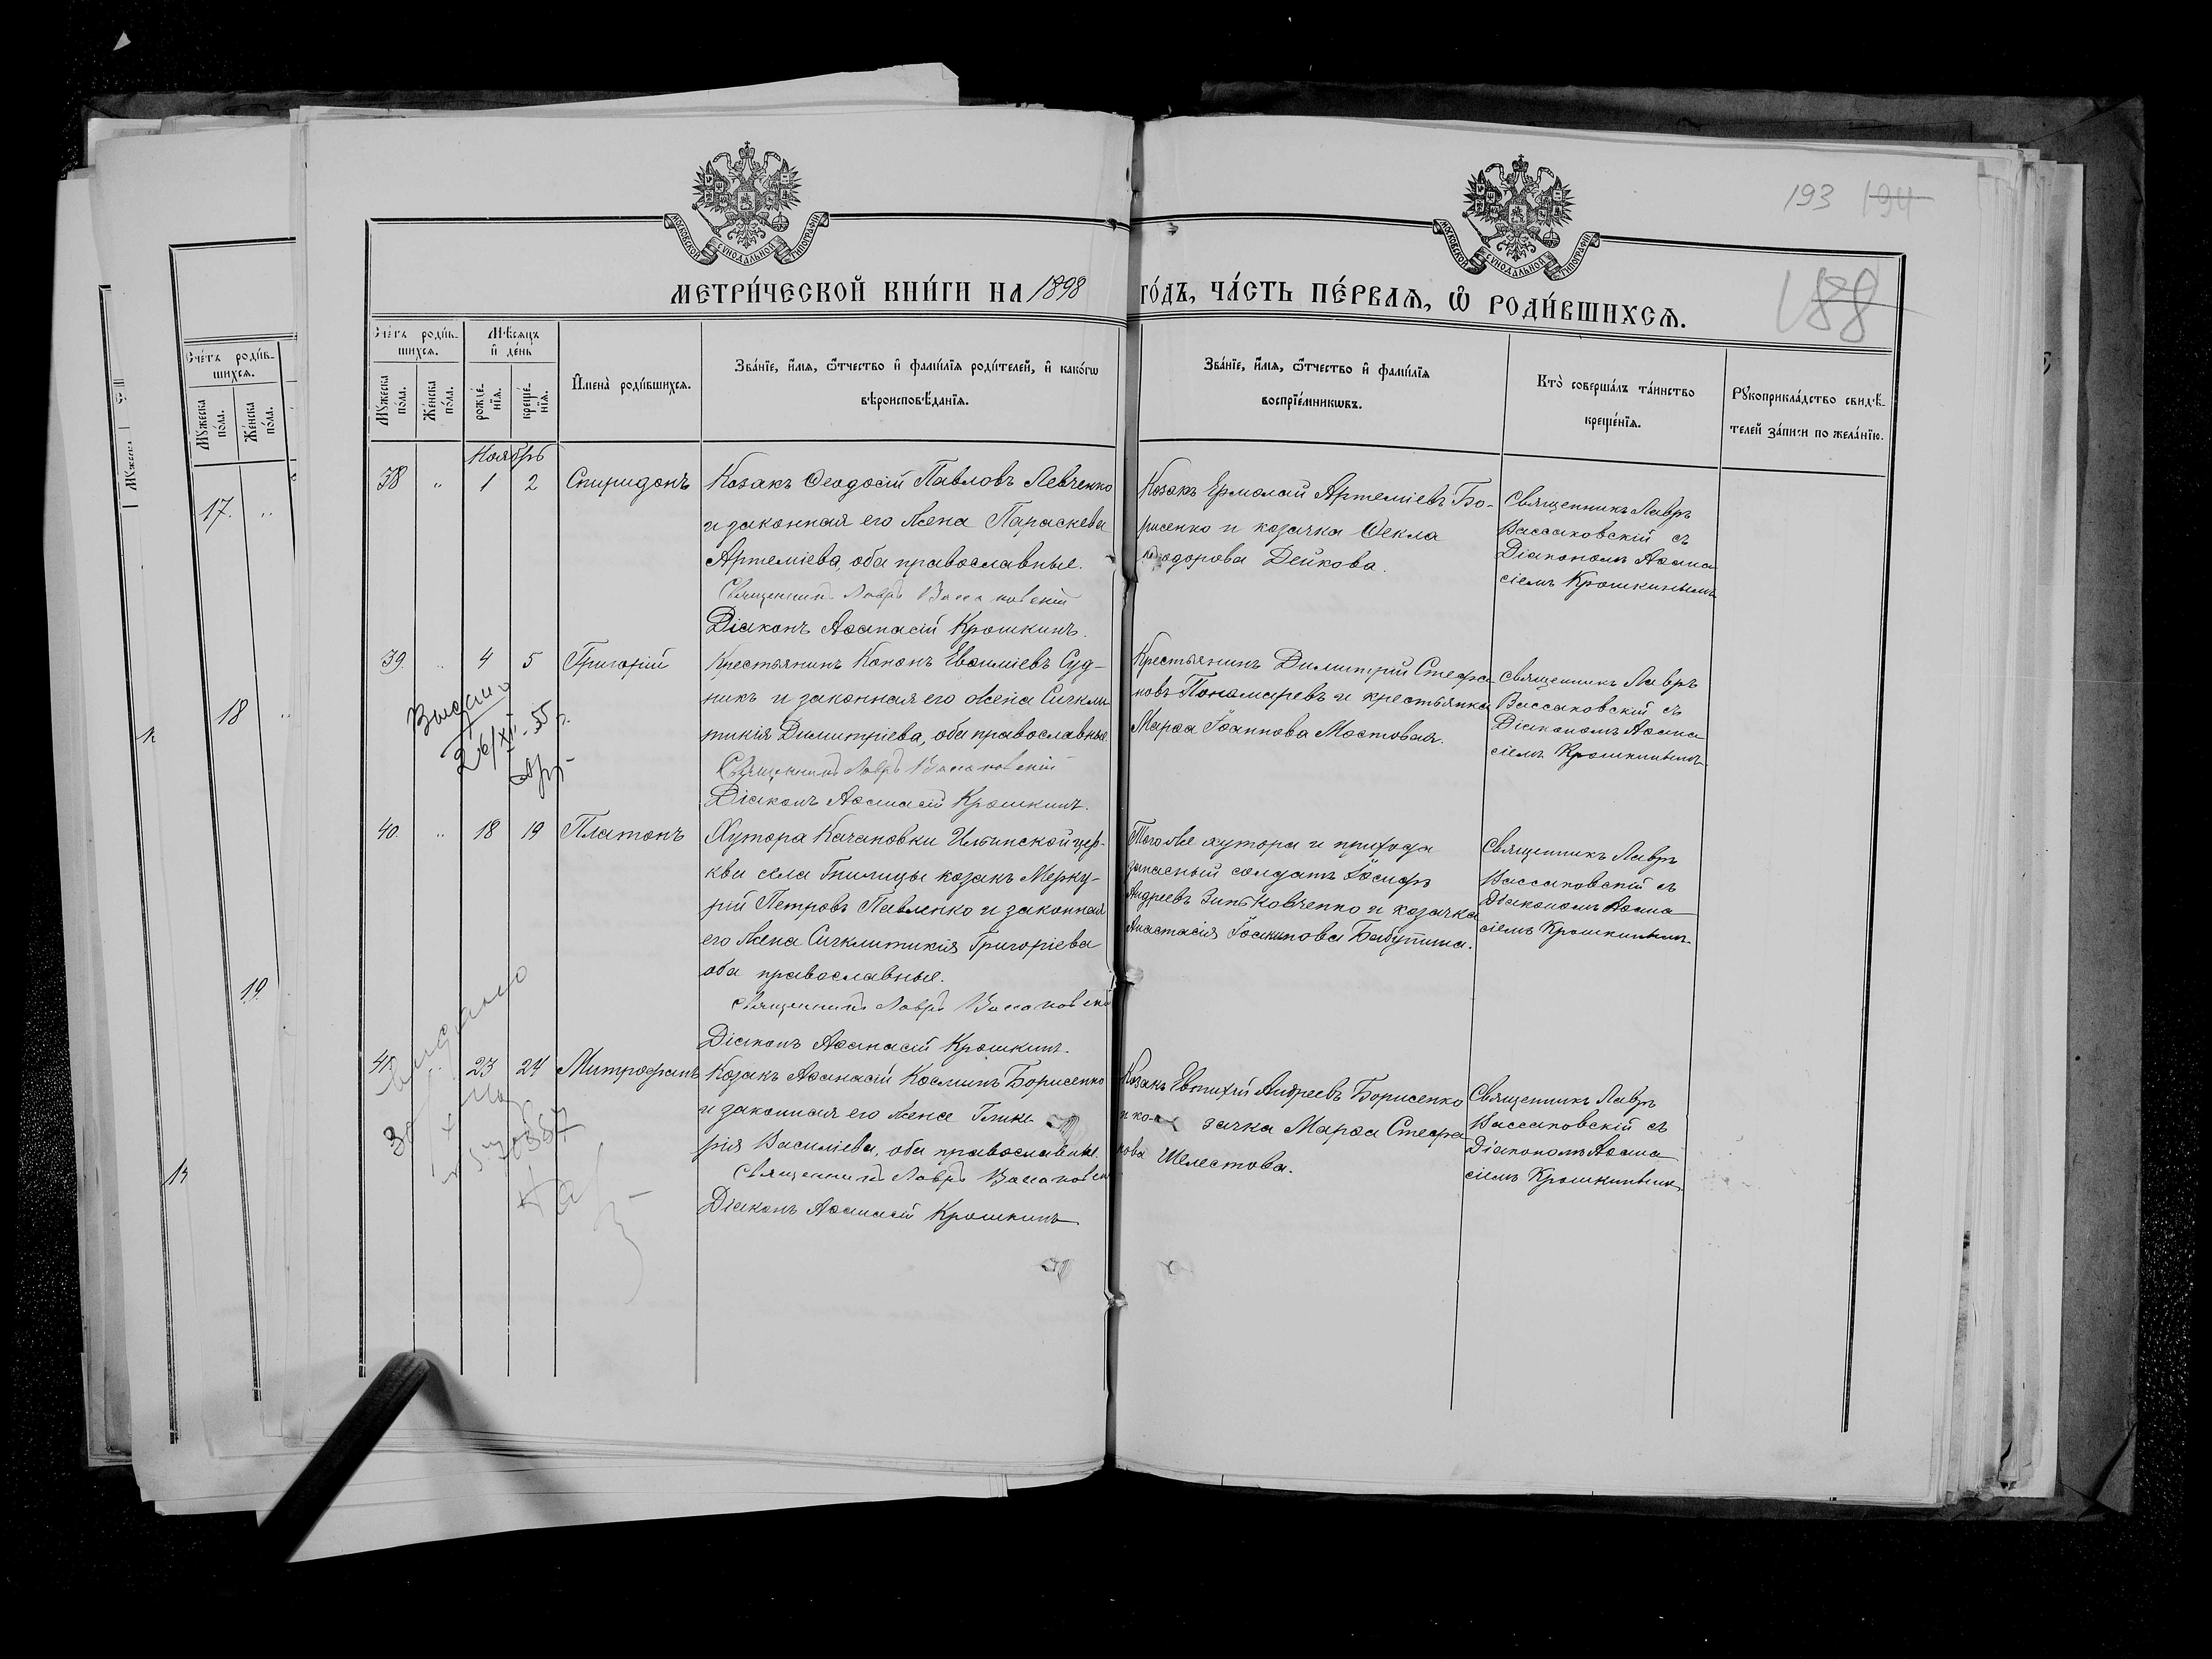 МОСКОВСКОЙ СУНОДАЛЬНОЙ ТИПОГРАФІИ
МОСКОВСКОЙ СУНОДАЛЬНОЙ ТИПОГРАФІИ
193 194
188
МЕТРИ́ЧЕСКОЙ КНИ́ГИ НА 1898 ГО́ДЪ, ЧА́СТЬ ПЕ́РВАѦ, Ѿ РОДИ́ВШИХСѦ.
Сче́тъ роди́в-
шихся.
Мꙋ́жеска по́ла.
Же́нска по́ла.
Мѣ́сяцъ и҆ де́нь
рожде́-
нїя.
креще́-
нїя.
И҆мена̀ роди́вшихся.
Зва́нїе, и҆́мя, ѻ҆́тчество и҆ фами́лїя роди́телей, и҆ како́гѡ
вѣроисповѣ́данїя.
Зва́нїе, и҆́мя, ѻ҆́тчество и҆ фами́лїя
воспрїе́мникѡвъ.
Кто̀ соверша́лъ та́инство
креще́нїя.
Рꙋкоприкла́дство свидѣ́-
телей за́писи по жела́нїю.
Сче́тъ роди́в-
шихся.
Мꙋ́жеска по́ла.
Же́нска по́ла.
17. "
18 "
19.
Ноябрь
38 " 1 2 Спиридонъ
Козакъ Ѳеодосій Павловъ Левченко
и законная его жена Параскева
Артеміева, оба православные.
Священникъ Лавръ Вассаковскій
Діаконъ Аѳанасій Крошкинъ.
Козакъ Ермолай Артеміевъ Бо-
рисенко и козачка Ѳекла
Дейкова.
Священникъ Лавръ
Вассаковскій съ
Діакономъ Аѳана
сіемъ Крошкинымъ
39. " 4 5 Григорій
Выдано
26/XI-55 г.
Крестьянинъ Кононъ Евѳиміевъ Суд-
никъ и законная его жена Сигкли-
тикія Димитріева, оба православные
Священникъ Лавръ Вассаковскій
Діаконъ Аѳанасій Крошкинъ.
Крестьянинъ Димитрій Стефа-
новъ Пономаревъ и крестьянка
Марѳа Іоаннова Мостовая.
Священникъ Лавръ
Вассаковскій съ
Діакономъ Аѳана
сіемъ Крошкинымъ
40. " 18 19 Платонъ
Хутора Качановки Ильинской цер-
кви села Гнилицы козакъ Мерку-
рій Петровъ Павленко и законная
его жена Сигклитикія Григоріева
оба православные.
Священникъ Лавръ Вассаковскій
Діаконъ Аѳанасій Крошкинъ.
Того же хутора и прихода
запасный солдатъ Іосифъ
Андреевъ Зиньковченко и козачка
Анастасія Іоакимова
Священникъ Лавръ
Вассаковскій съ
Діакономъ Аѳана
сіемъ Крошкинымъ
41. " 23 24 Митрофанъ
выдано
Козакъ Аѳанасій Косминъ Борисенко
и законная его жена Глике-
рія Василіева, оба православные.
Священникъ Лавръ Вассаковскій
Діаконъ Аѳанасій Крошкинъ
Козакъ Евтихій Андреевъ Борисенко
и ко- зачка Марѳа Стефа
нова Шелестова.
Священникъ Лавръ
Вассаковскій съ
Діакономъ Аѳана
сіемъ Крошкинымъ